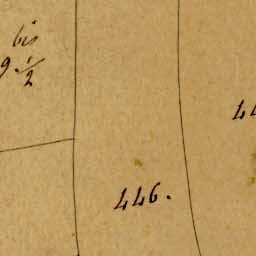 bis
9 1/2
44
446.